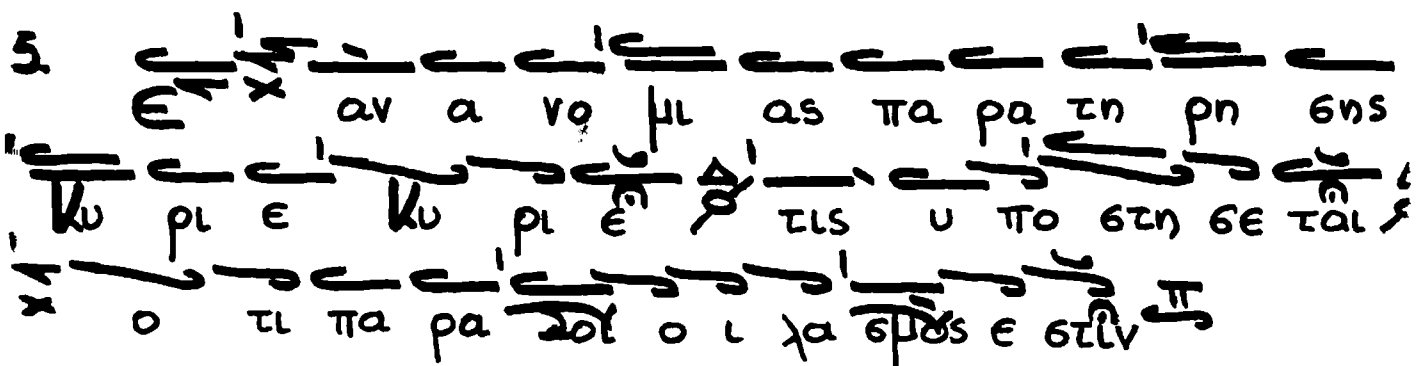 5. Ε αν α νο μι ας πα ρα τη ρη σης
Κυ ρι ε Κυ ρι ε τις υ πο στη σε ται
ο τι πα ρα σοι ο ι λα σμος ε στιν π